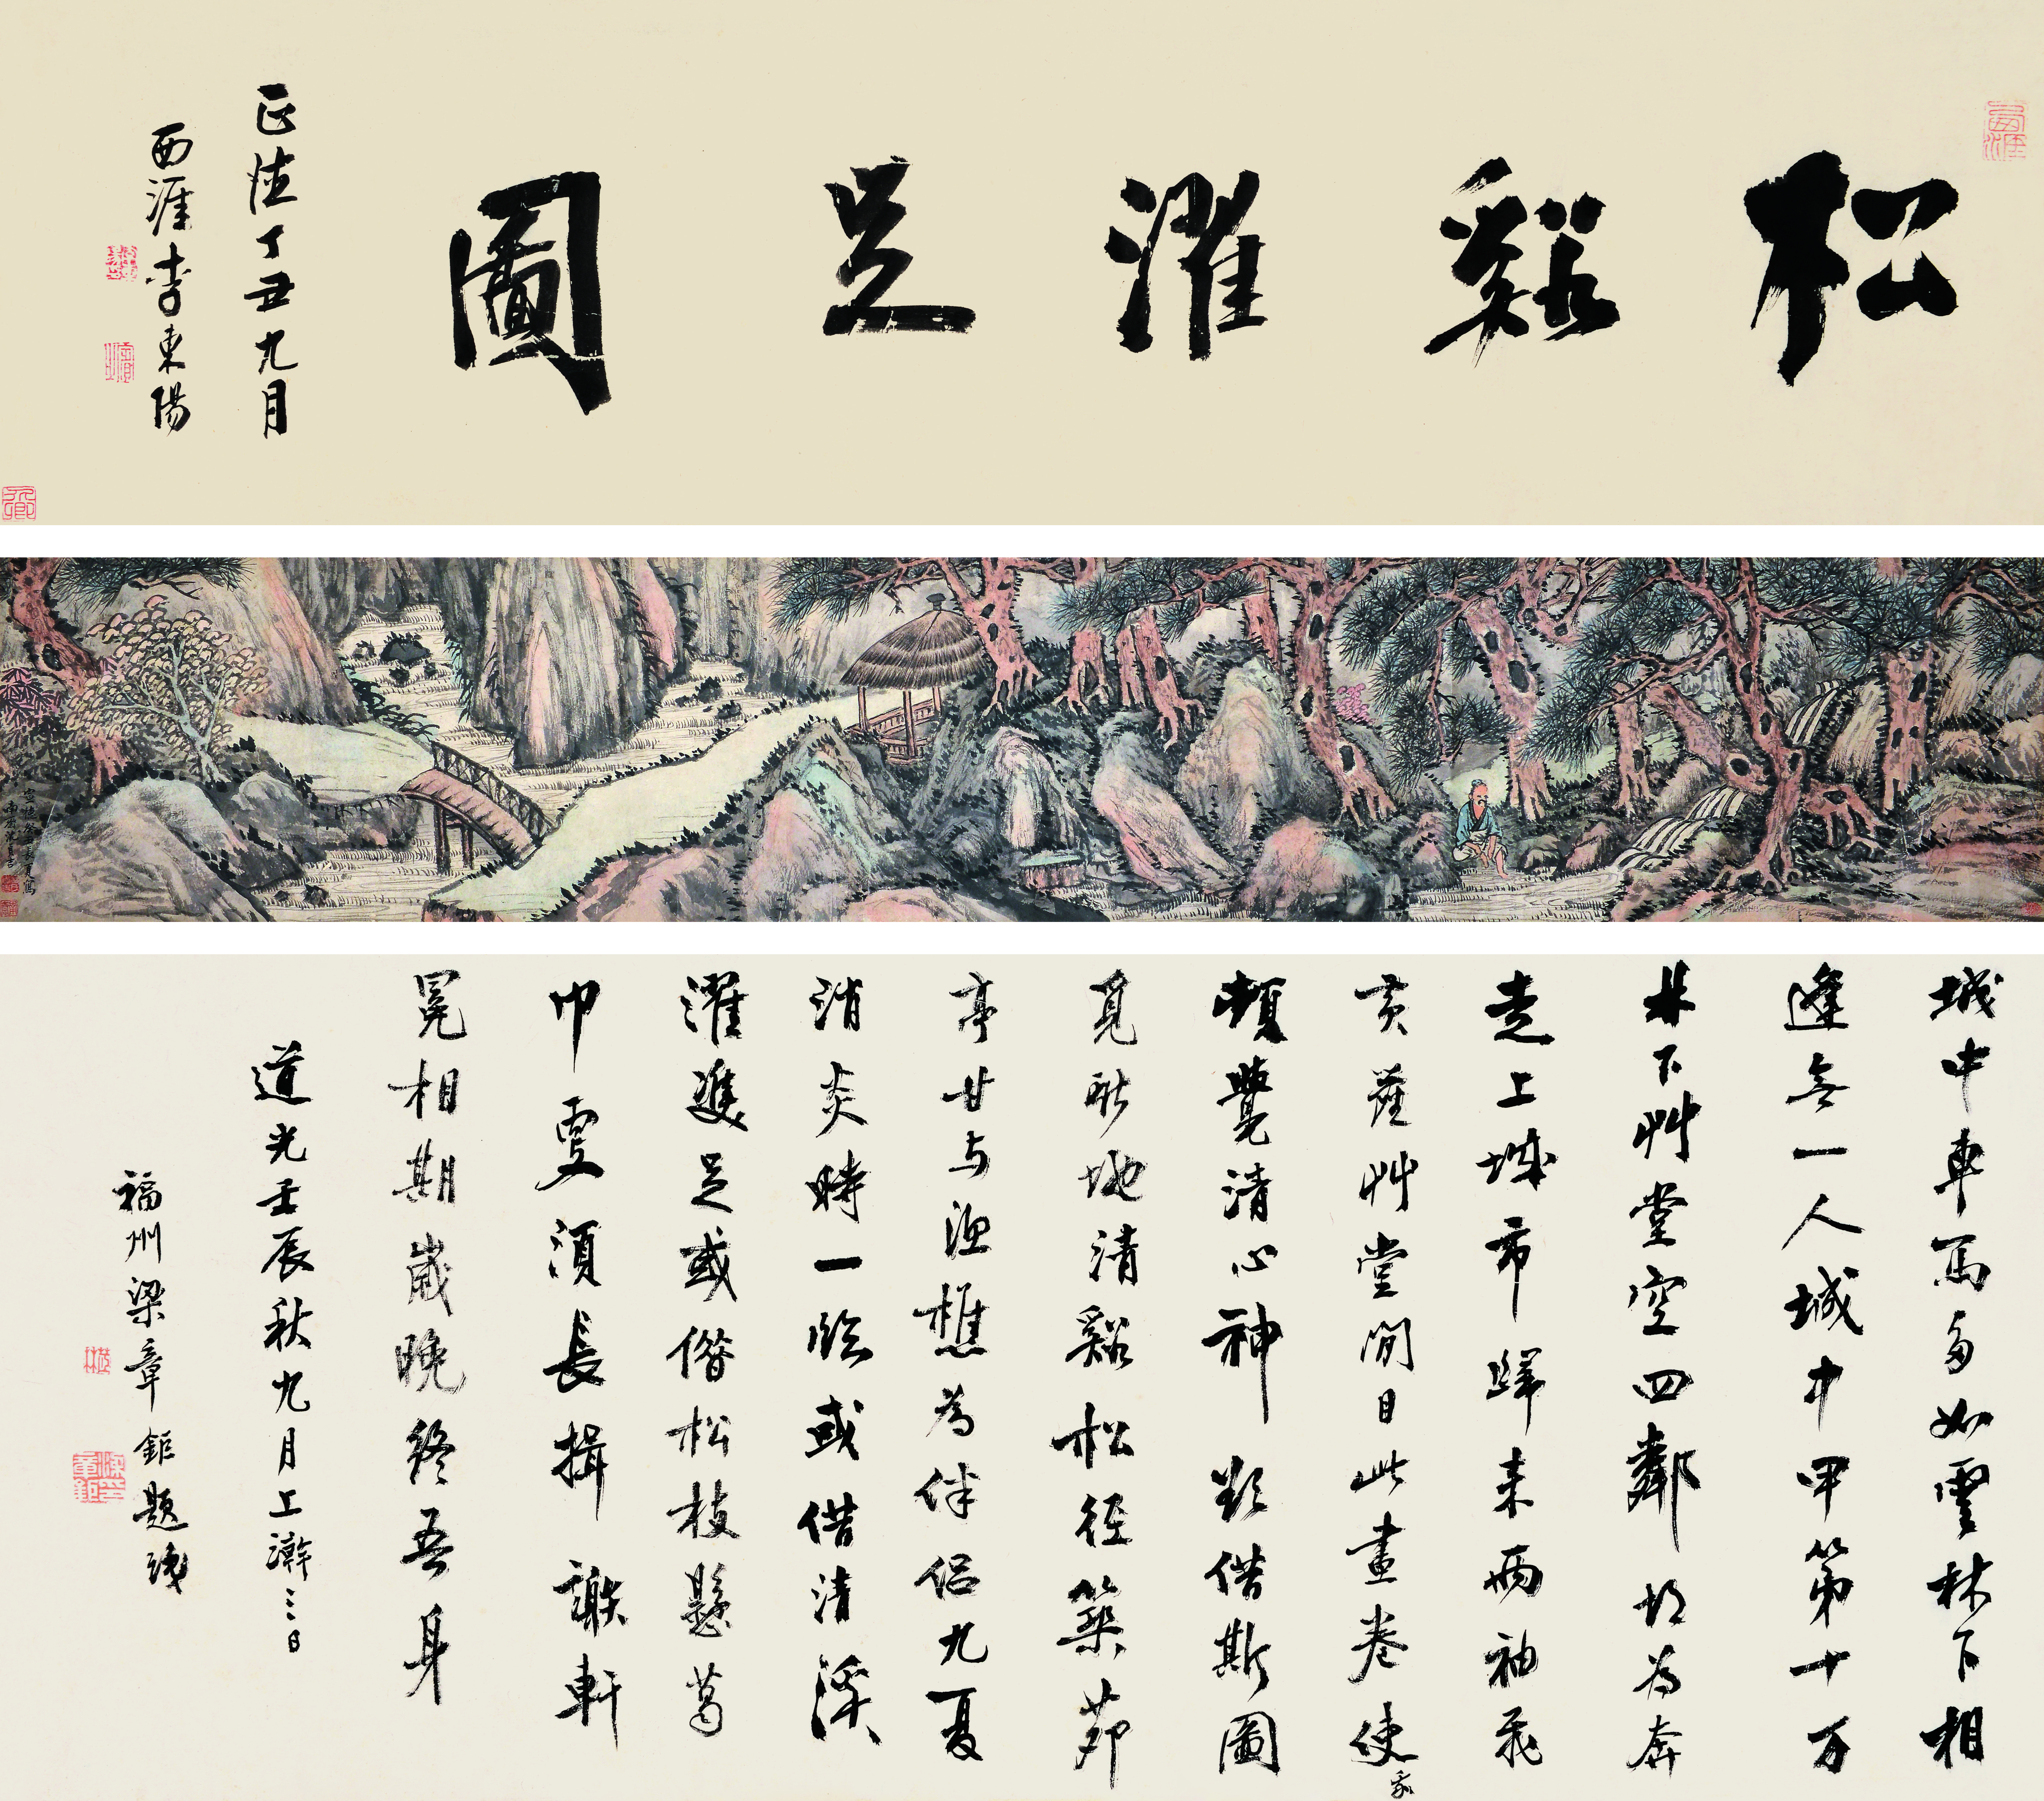 松谿濯足圖
正德丁丑九月
西涯李東陽
城中車馬多如雲林下相
逢無一人城中甲第十万
林下艸堂空四鄰胡为奔
走上城市歸来兩袖飛
黃塵艸堂閒日此畫卷使
我
頓覺清心神欲借斯圖
覓新地清谿松徑築茆
亭甘与漁樵為伴侣九夏
消炎時一臨或借清溪
濯雙足或借松枝懸葛
巾更須長揖謝軒
冕相期歲晚終吾身
道光壬辰秋九月上澣三日
福州梁章鉅題識